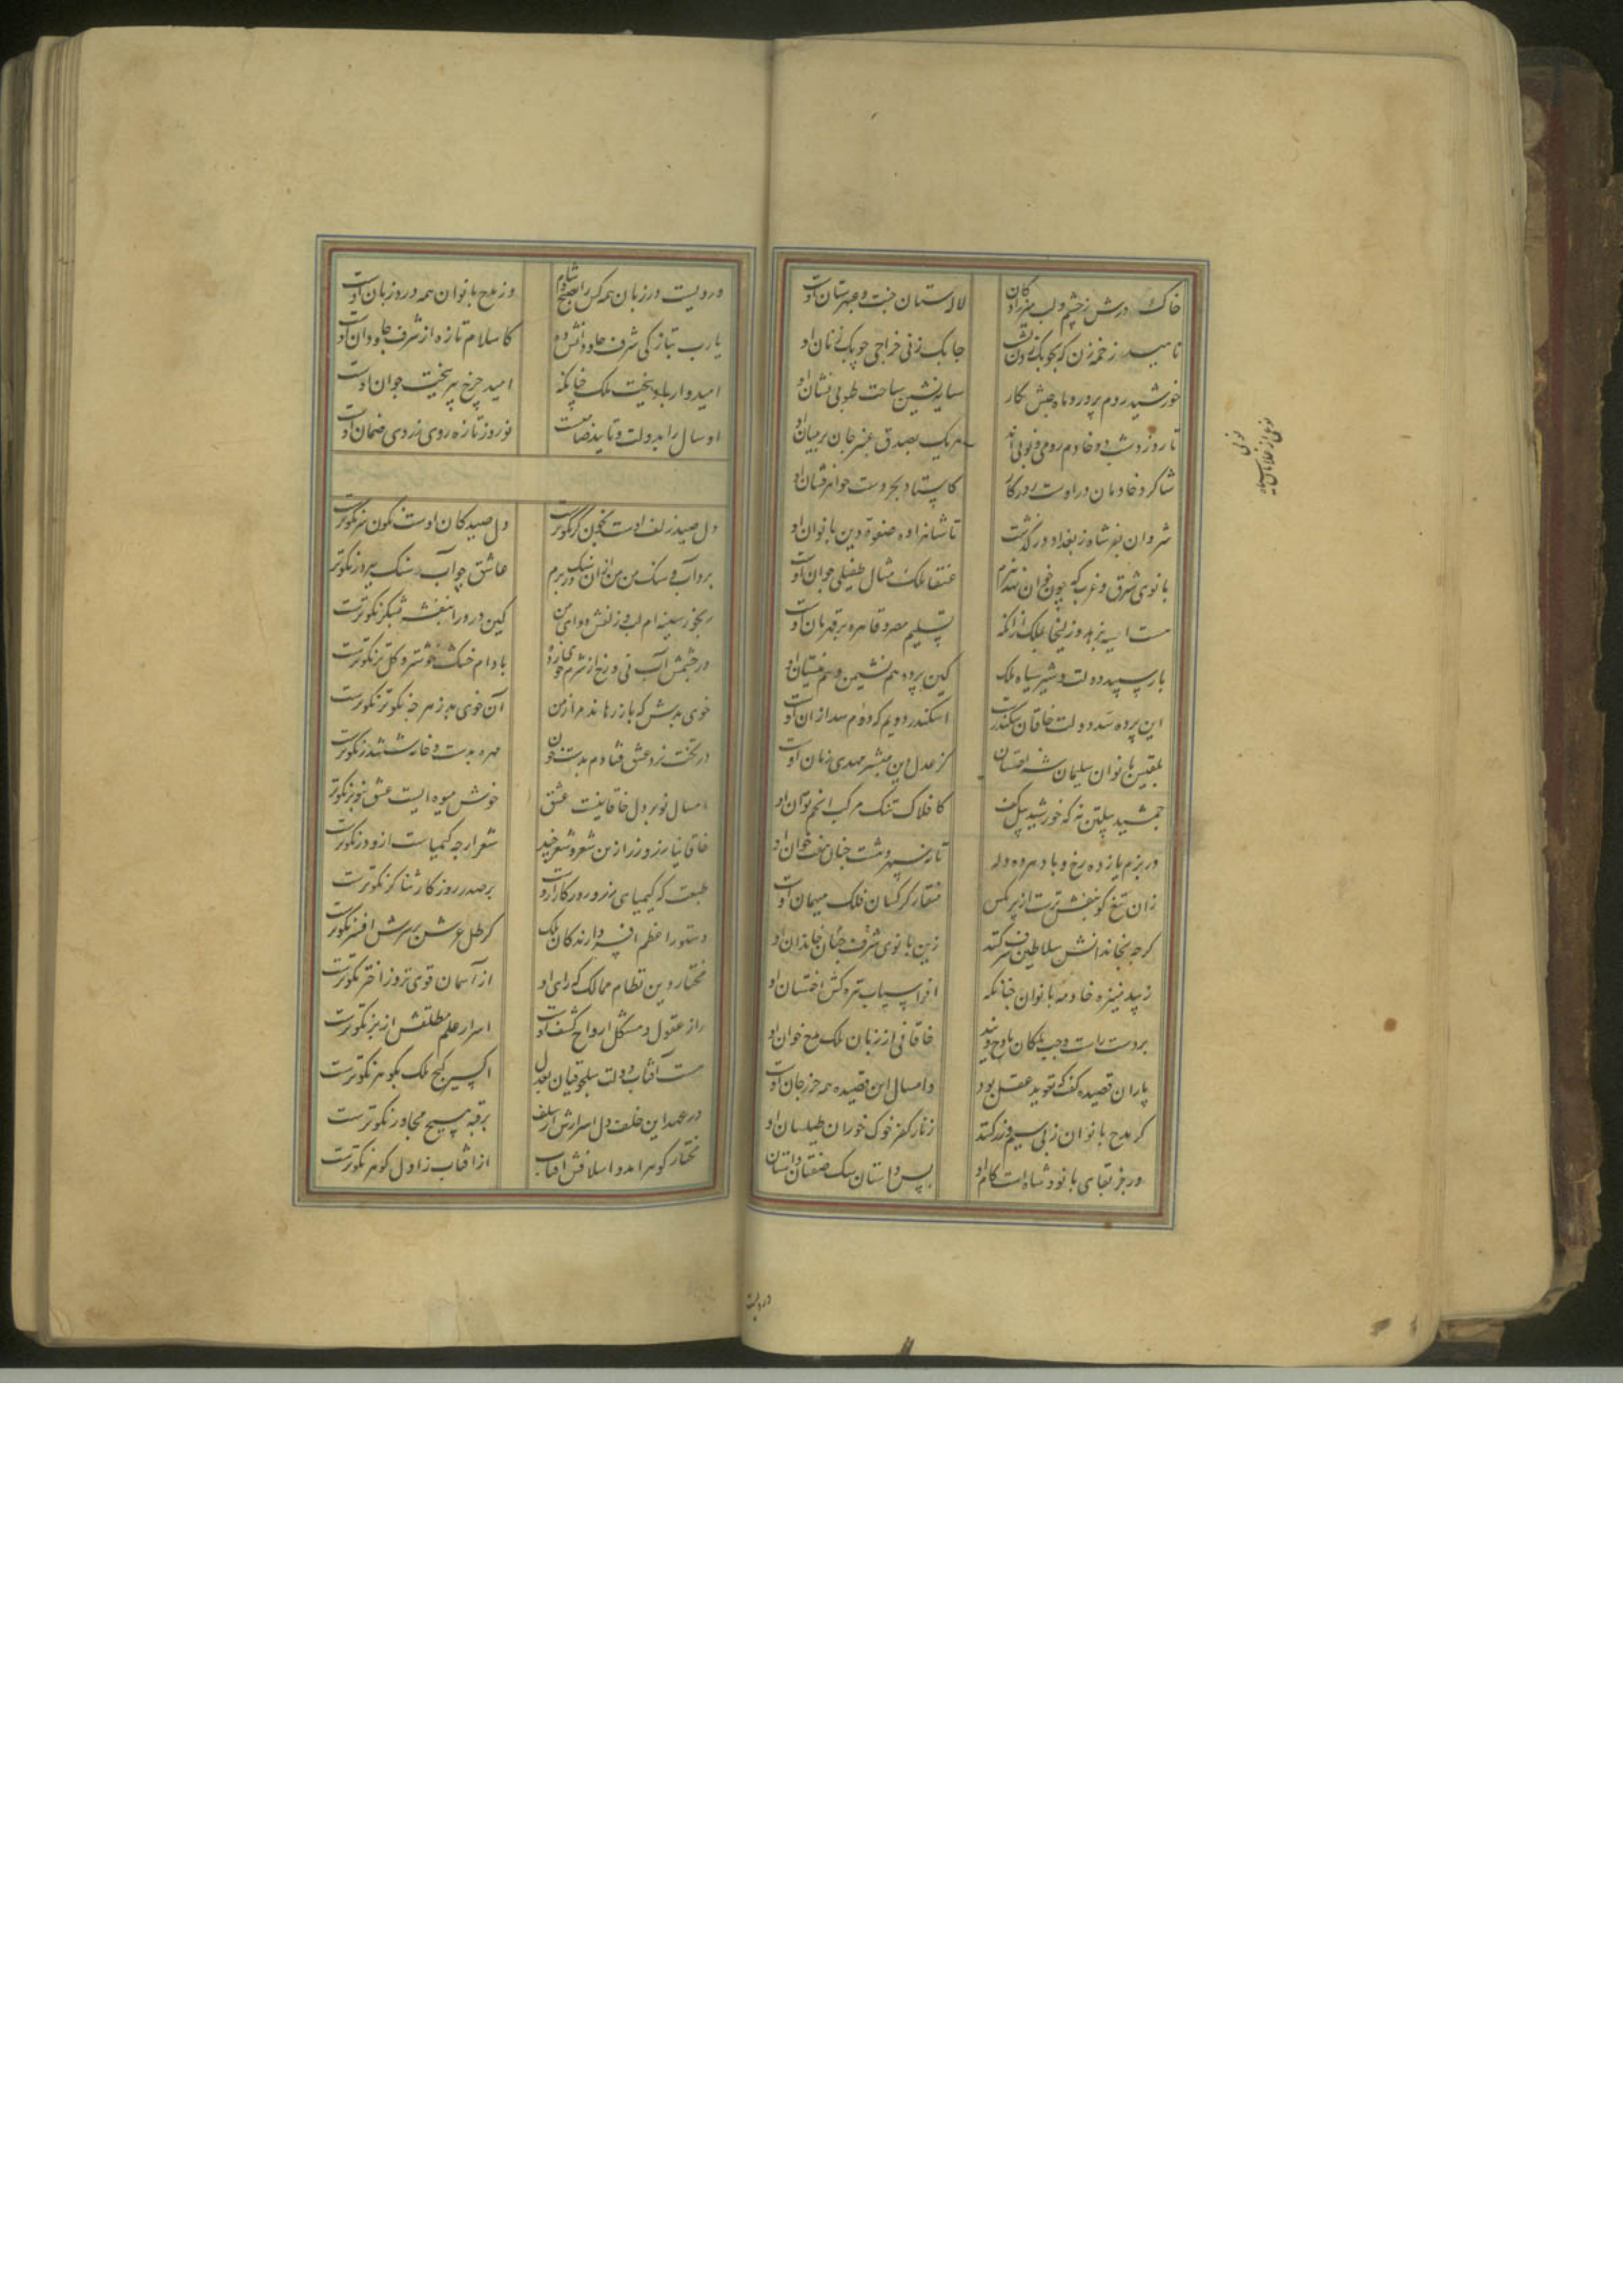 خاک درش ز چشم و لب میرزادکان لاله ستان جنت و عبهرستان اوست
ناهید زخمه زن جابک زنی خراجی جوبک زنان او
خورشید روم پرور و ماه حبش نکار سایه نشین ساحت طوبی نشان او
تا روز و شب دو خادم رومی و نوبی اند هر یک بصدق عنبر جان بر میان او
شاکرد خادمان در اوست روزکار کاستاد بحر دست جواهرفشان او
شروان بفر شاه ز بغداد درکذشت تا شاهزاده صفوة دین بانوان او
بانوی شرق و غرب که چون خوان نهد ببزم عنقا مکس مثال طفیلی خوان اوست
هست آسیه بزهد و زلیخا بملک ازانکه تسلیم مصر و قاهره بر قهرمان اوست
باز سپید دولت و شیر سیاه ملک کین پرده هم نشیمن و هم نیستان او
این پرده سد دولت خاقان سکندر است اسکندر دویم که دوم سد از ان اوست
بلقیس بانوان سلیمان شه اخستان کز عدل و دین مبشر مهدی زمان اوست
جمشید پیلتن نه که خورشید پیل کف کافلاک تنک مرکب انجم توان او
در بزم یازده رخ و باده ده دله تا نه سپهر و هشت جنان هفت خوان او
زان تیغ کو بنفش ترست از پر مکس منقار کرکسان فلک میهمان اوست
کرچه بخاندانش سلاطین شرف کنند زین بانوی شرف جهان خاندان او
زیبد منیژه خادمه بانوان چنانکه افراسیاب تره کش اخستان او
بر دست راست و چپ ملکان مادح ویند خاقانی از زبان ملک مدح خوان او
پار ان قصیده کفت که تعوید عقل بود و امسال این قصیده همه حرز جان اوست
کر مدح بانوان ز پی سیم و زر کند زنار کفر خوک خوران طیلسان او
ور جز بقای بانو و شاه است کام او پس داستان سک صفتان داستان
نوبی
نوعی از غلامان سیاه
دردیست
دردیست در زبان همه کس را صبح و شام وز مدح بانوان همه در و زبان اوست
یارب بتازکی شرف جاودانش ده کاسلام تازه از شرف جاودان اوست
امیدوار باد ببخت ملک چنانکه امید چرخ پیر ببخت جوان اوست
او سال را بدولت و تایید ضامنست نوروز تازه روی ز روی ضمان اوست
دل صید زلف اوست بخون در نکوترست دل صید کان اوست نکون سر نکوترست
بر در آب و سنک من من ازان سنک در برم عاشق چو آب سنک ببر در نکوترست
رنجور سینه ام لب و زلفش دوای من کین درد را بنفشه بشکر نکوترست
در چشمش آب نی و رخ از شرم خوی زده بادام خشک خوشتر و کل تر نکوترست
خوی بدش که باز رهاندم از من آن خوی بد ز هر چه نکوتر نکوترست
در تخت نرد عشق فتادم بدست خون مهره بدست و خانه ششدر نکوترست
امسال نوبر دل خاقانیست عشق خوش میوه ایست عشق بنوبر نکوترست
خاقانیا بزر و زر از من شعر و شعر خر شعر ارچه کیمیاست ازو زر نکوترست
طبعت که کیمیای زر روزکار ازوست بر صدر روزکار ثناکر نکوترست
دستور اعظم افسر دارندکان ملک کز ظل عرش بر سرش افسر نکوترست
مختار دین نظام ممالک که رای او از آسمان قوی تر و ز اختر نکوترست
راز عقول و مشکل ارواح کشف اوست اسرار علم مطلقش از بر نکوترست
هست آفتاب دولت سلجوقیان بعدل اکسیر کنج ملک بکوهر نکوترست
در عهد این خلف دل اسرارش از سلف بر قبه مسیح مجاور نکوترست
مختار کوهر آمد و اسلافش افتاب از افتاب زادن کوهر نکوترست